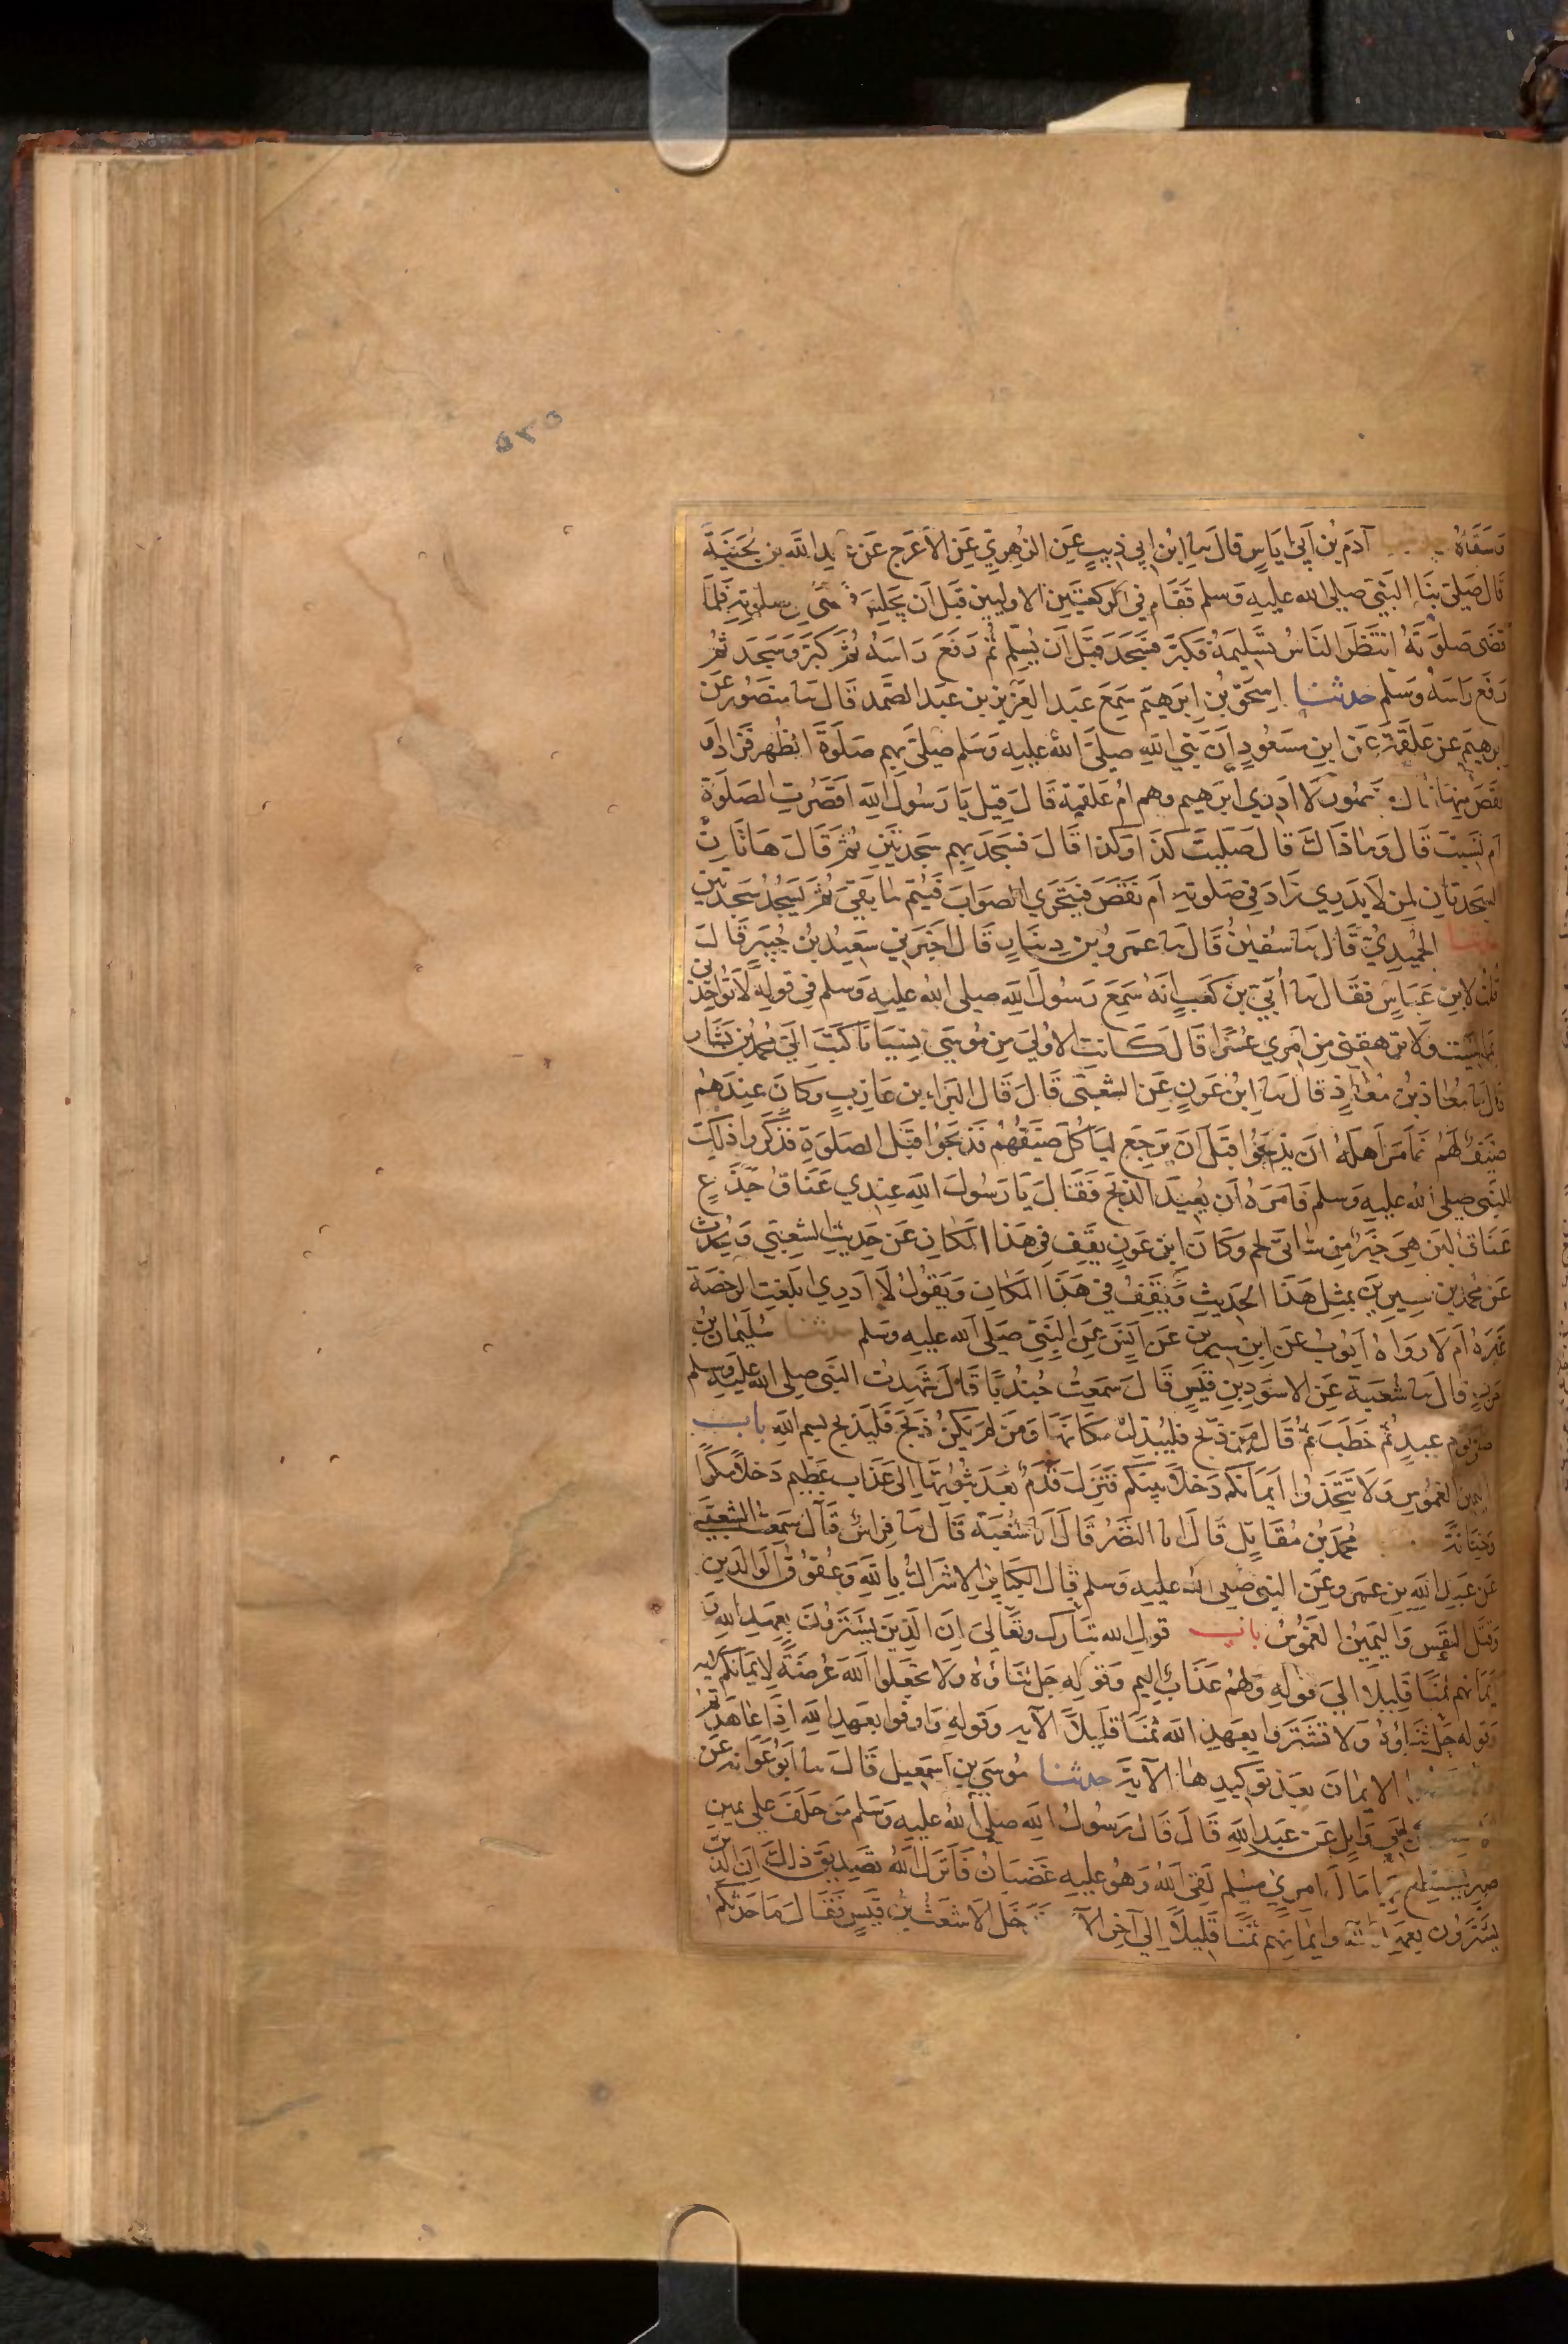 ٥٢٥
وسقاه آدم بن أبي إياس قال نا ابن أبي ذيب عن الزهري عن الأعرج عن عبد الله بن بحينة
قال صلى بنا النبي صلى الله عليه وسلم فقام في الركعتين الاوليين قبل أن يجلس فمضى في صلوته فلما
قضى صلوته انتظر الناس تسليمه فكبر فسجد قبل أن يسلم ثم رفع راسه ثم كبر وسجد ثم
رفع راسه وسلم حدثنا إسحق بن ابرهيم سمع عبد العزيز بن عبد الصمد قال نا منصور عن
ابرهيم عن علقمة عن ابن مسعود أن نبي الله صلى الله عليه وسلم صلى بهم صلوة الظهر فزاد أو
نقص منها قال منصور لا ادري ابرهيم وهم ام علقمة قال قيل يا رسول الله اقصرت الصلوة
ام نسيت قال وما ذاك قال صليت كذا وكذا قال فسجد بهم سجدتين ثم قال هاتان
السجدتان لمن لا يدري زاد في صلوته ام نقص فيتحري الصواب فيتم ما بقي ثم يسجد سجدتين
حدثنا الحميدي قال نا سفين قال نا عمرو بن دينار قال اخبرني سعيد بن جبير قال
قلت لابن عباس فقال نا أبي بن كعب انه سمع رسول الله صلى الله عليه وسلم في قوله لا تواخذني
بما نسيت ولا ترهقني من امري عسرا قال كانت الاولى من موسى نسيانا كتب الي محمد بن بشار
قال نا معاذ بن معاذ قال نا ابن عون عن الشعبي قال قال البراء بن عازب وكان عندهم
ضيف لهم فأمر اهله ان يذبحوا قبل أن يرجع ليأكل ضيفهم فذبحوا قبل الصلوة فذكروا ذلك
للنبي صلى الله عليه وسلم فامره أن يعيد الذبح فقال يا رسول الله عندي عناق جذع
عناق لبن هي خير من شاتي لحم وكان ابن عون يقف في هذا المكان عن حديث الشعبي ويحدث
عن محمد بن سيرين بمثل هذا الحديث ويقف في هذا المكان ويقول لا ادري ابلغت الرخصة
غيره أم لا رواه أيوب عن ابن سيرين عن انس عن النبي صلى الله عليه وسلم حدثنا سليمان بن
حرب قال نا شعبة عن الاسود بن قيس قال سمعت جندبا قال شهدت النبي صلى الله عليه وسلم
صلى يوم عيد ثم خطب ثم قال من ذبح فليبدل مكانها ومن لم يكن ذبح فليذبح بسم الله باب
اليمين الغموس ولا تتخذوا أيمانكم دخلا بينكم فتزل قدم بعد ثبوتها الى عذاب عظيم دخلا مكرا
وخيانة محمد بن مقاتل قال انا النضر قال انا شعبة قال نا فراس قال سمعت الشعبي
عن عبد الله بن عمرو عن النبي صلى الله عليه وسلم قال الكباير الاشراك بالله وعقوق الوالدين
وقتل النفس واليمين الغموس باب قول الله تبارك وتعالى ان الذين يشترون بعهد الله و
أيمانهم ثمنا قليلا الى قوله ولهم عذاب اليم وقوله جل ثناؤه ولا تجعلوا الله عرضة لايمانكم الايه
وقوله جل ثناؤه ولا تشتروا بعهد الله ثمنا قليلا الآيه وقوله واوفوا بعهد الله اذا عاهدتم
ولا تنقضوا الايمان بعد توكيدها الآية حدثنا موسى بن اسمعيل قال نا أبو عوانه عن
أبي وايل عن عبد الله قال قال رسول الله صلى الله عليه وسلم من حلف على يمين
صبر يقتطع بها مال امرئ مسلم لقي الله وهو عليه غضبان فأنزل الله تصديق ذلك ان الذين
يشترون بعهد الله وايمانهم ثمنا قليلا الى آخر الآية فدخل الاشعث بن قيس فقال ما حدثكم